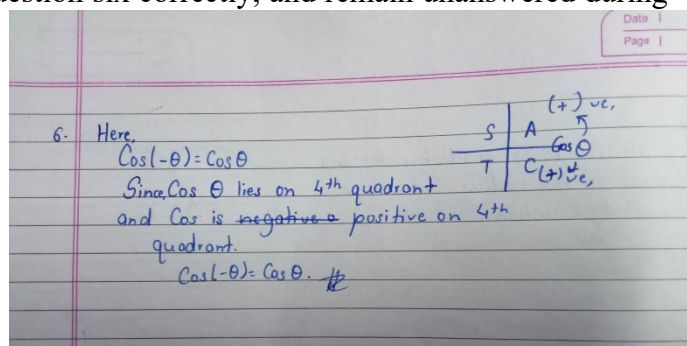 estion six correctly, and remain unanswered during
Date
Page
6. Here,
Cos(-θ) = Cosθ
Since, Cos θ lies on 4th quadrant
and Cos is negative positive on 4th
quadrant.
Cos(-θ) = Cosθ.
(+) ve,
S A
Cosθ
T C (+) ve,